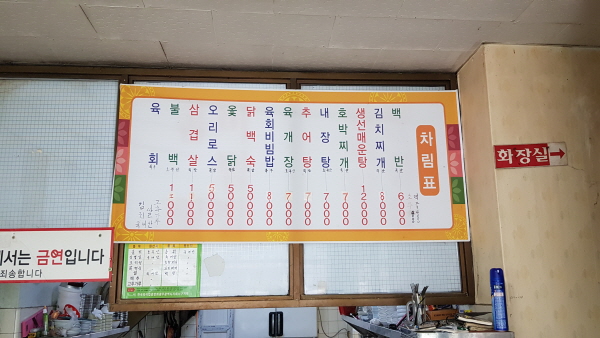 차림표
백반 6000
김치찌개 8000
생선매운탕 12000
호박찌개 7000
내장탕 7000
추어탕 7000
육개장 7000
육회비빔밥 8000
닭백숙 50000
옻닭 50000
오리로스 50000
삼겹살 11000
불백 12000
육회
화장실
에서는 금연입니다
죄송합니다